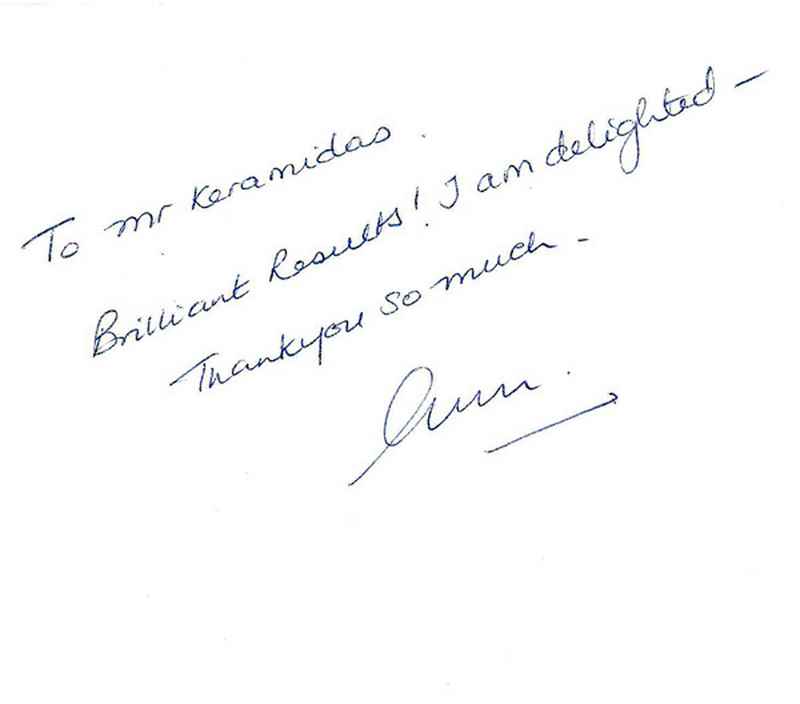 To Mr Keramidas.
Brilliant Results! I am delighted -
Thankyou so much -
Ann.